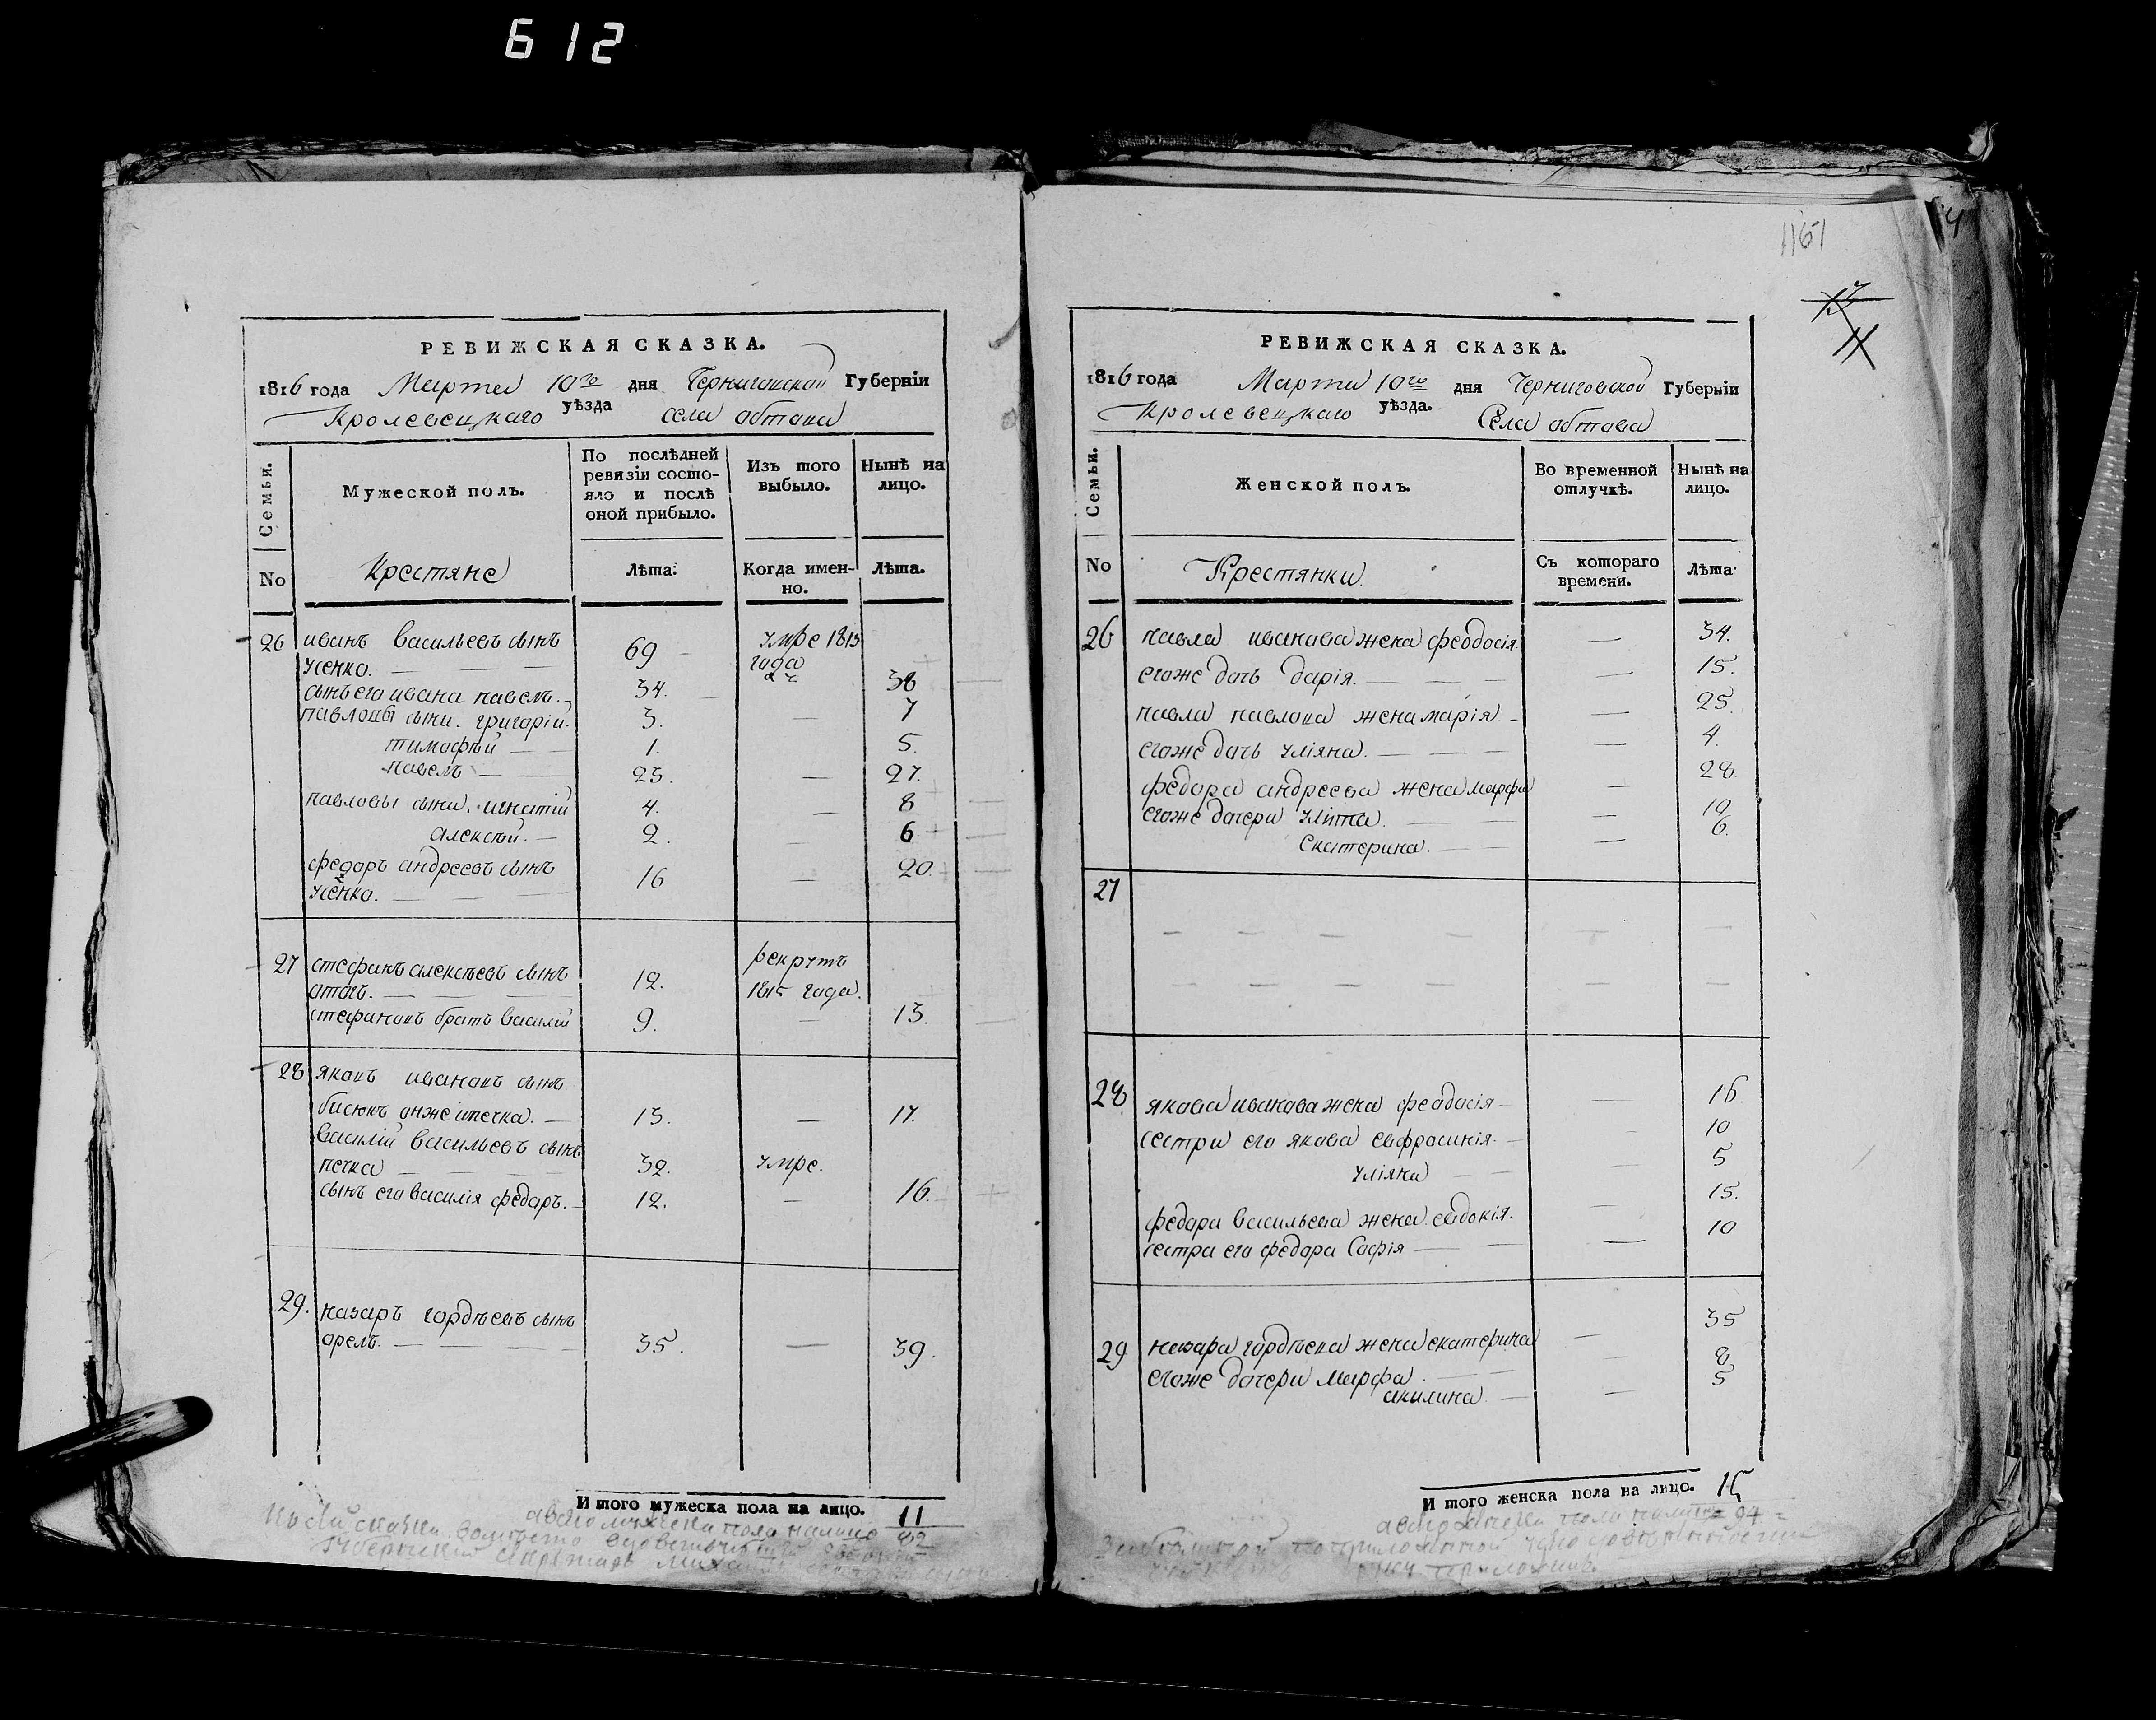 612
1161
4
13
11
РЕВИЖСКАЯ СКАЗКА.
1816 года Марта 10го дня Черниговской Губерніи
Кролевецкаго уѣзда села обтова
Семьи.
Мужеской полъ.
По послѣдней ревизіи состояло и послѣ оной прибыло.
Изъ того выбыло.
Нынѣ на лицо.
No
Крестяне
Лѣта.
Когда именно.
Лѣта.
26 иванъ васильевъ сынъ
усенко. — 69 умре 1815 года
сынъ его ивана павелъ. 34. 38
павловы сыни. григорій. 3. — 7
тимофѣй — 1. 5.
павелъ — 23. — 27.
павловы сыни. игнатій 4. — 8
алексѣй. — 2. — 6
федоръ андреевъ сынъ
усенко. — 16 — 20.
27 стефанъ алексѣевъ сынъ 12. рекрутъ 1815 года.
стефановъ братъ василій 9. — 13.
28 яковъ ивановъ сынъ
онже ипечка. — 13. — 17.
василій васильевъ сынъ
печка — 32. умре.
сынъ его василія федоръ. — 12. — 16.
29. назаръ гордѣевъ сынъ
орелъ. — 35. — 39.
И того мужеска пола на лицо. 11
РЕВИЖСКАЯ СКАЗКА.
1816 года Марта 10го дня Черниговской Губерніи
Кролевецкаго уѣзда. Села обтова
Семьи.
Женской полъ.
Во временной отлучкѣ.
Нынѣ на лицо.
No
Крестянки.
Съ котораго времени.
Лѣта.
26 павла иванова жена феодосія. — 34.
егоже дочь дарія. — — 15.
павла павлова жена марія. — — 25.
егоже дочь уліяна. — — 4.
федора андреева жена марфа — 28.
егоже дочери улита. — — 10
екатерина. — — 6.
27
28 якова иванова жена феодосія — 16.
сестри его якова евфросинія. — 10
уліяна — 5
федора васильева жена евдокія. — 15.
сестра его федора Софія — — 10
29 назара гордѣева жена екатерина — 35
егоже дочери марфа. — 8
акилина. — — 5
И того женска пола на лицо. 15